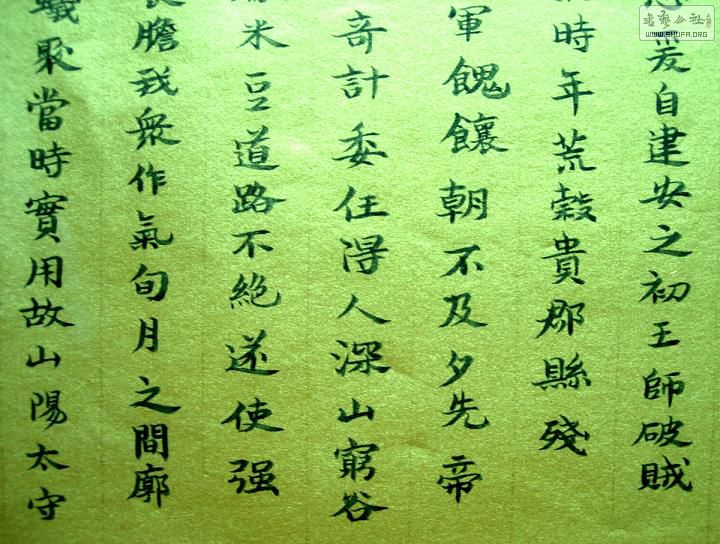 爰自建安之初王師破賊
時年荒穀貴郡縣殘
軍餽饟朝不及夕先帝
奇計委任得人深山窮谷
米豆道路不絕遂使强
膽我衆作氣旬月之間廓
蟻聚當時實用故山陽太守
书艺公社
WWW.SHUFA.ORG